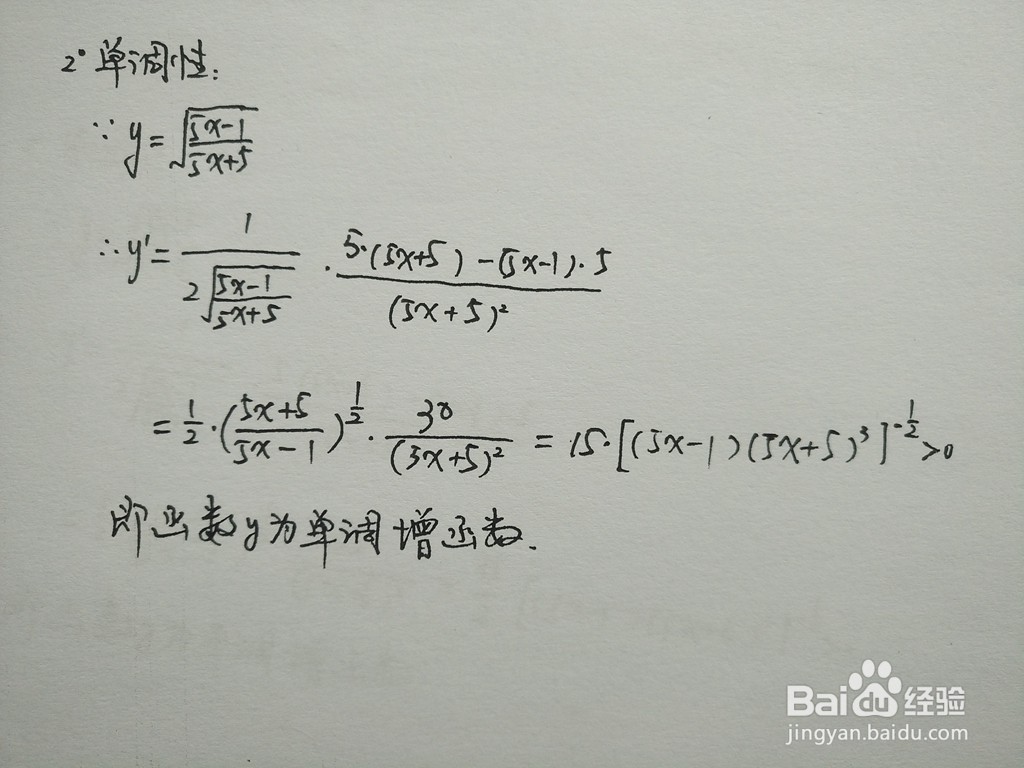 2° 单调性:
∵ y = √((5x-1)/(5x+5))
∴ y' = 1/(2√((5x-1)/(5x+5))) · (5·(5x+5) - (5x-1)·5)/(5x+5)²
= 1/2 · ((5x+5)/(5x-1))^(1/2) · 30/(5x+5)² = 15·[(5x-1)(5x+5)³]^(-1/2) >0
即函数y为单调增函数.
Baidu经验
jingyan.baidu.com